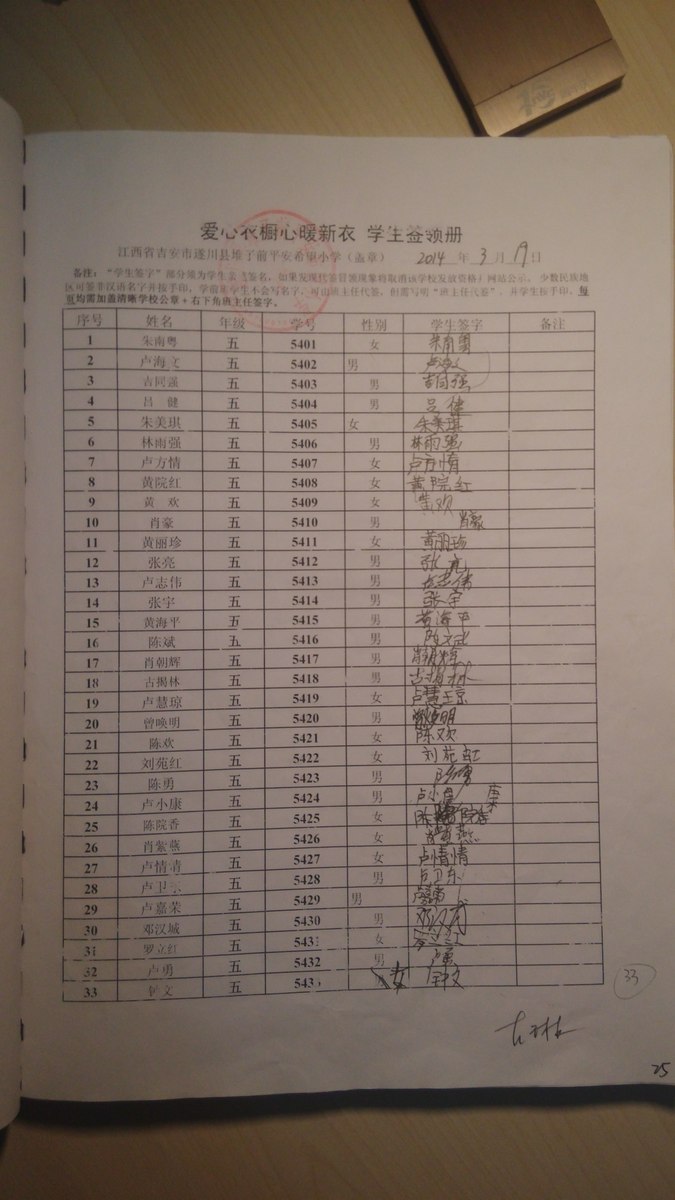 爱心衣橱心暖新衣 学生签领册
江西省吉安市遂川县堆子前平安希望小学（盖章） 2014 年 3 月 19 日
备注：“学生签字”部分须为学生亲笔签名，如果发现代签冒领现象将取消该学校发放资格，网站公示。少数民族地
区可签非汉语名字并按手印，学前班学生不会写名字，可由班主任代签，但需写明“班主任代签”，并学生按手印。每
页均需加盖清晰学校公章＋右下角班主任签字。
序号 姓名 年级 学号 性别 学生签字 备注
1 朱南粤 五 5401 女 朱南粤
2 卢海文 五 5402 男 卢海文
3 吉同强 五 5403 男 吉同强
4 吕 健 五 5404 男 吕健
5 朱美琪 五 5405 女 朱美琪
6 林雨强 五 5406 男 林雨强
7 卢方情 五 5407 女 卢方情
8 黄院红 五 5408 女 黄院红
9 黄 欢 五 5409 女 黄欢
10 肖豪 五 5410 男 肖豪
11 黄丽珍 五 5411 女 黄丽珍
12 张亮 五 5412 男 张亮
13 卢志伟 五 5413 男 卢志伟
14 张宇 五 5414 男 张宇
15 黄海平 五 5415 男 黄海平
16 陈斌 五 5416 男 陈斌
17 肖朝辉 五 5417 男 肖朝辉
18 古揭林 五 5418 男 古揭林
19 卢慧琼 五 5419 女 卢慧琼
20 曾唤明 五 5420 男 曾唤明
21 陈欢 五 5421 女 陈欢
22 刘苑红 五 5422 女 刘苑红
23 陈勇 五 5423 男 陈勇
24 卢小康 五 5424 男 卢小康
25 陈院香 五 5425 女 陈院香
26 肖紫燕 五 5426 女 肖紫燕
27 卢情情 五 5427 女 卢情情
28 卢卫东 五 5428 男 卢卫东
29 卢嘉荣 五 5429 男
30 邓汉城 五 5430 男 邓汉城
31 罗立红 五 5431 女
32 卢勇 五 5432 男 卢勇
33 钟文 五 543 女 钟文
33
25